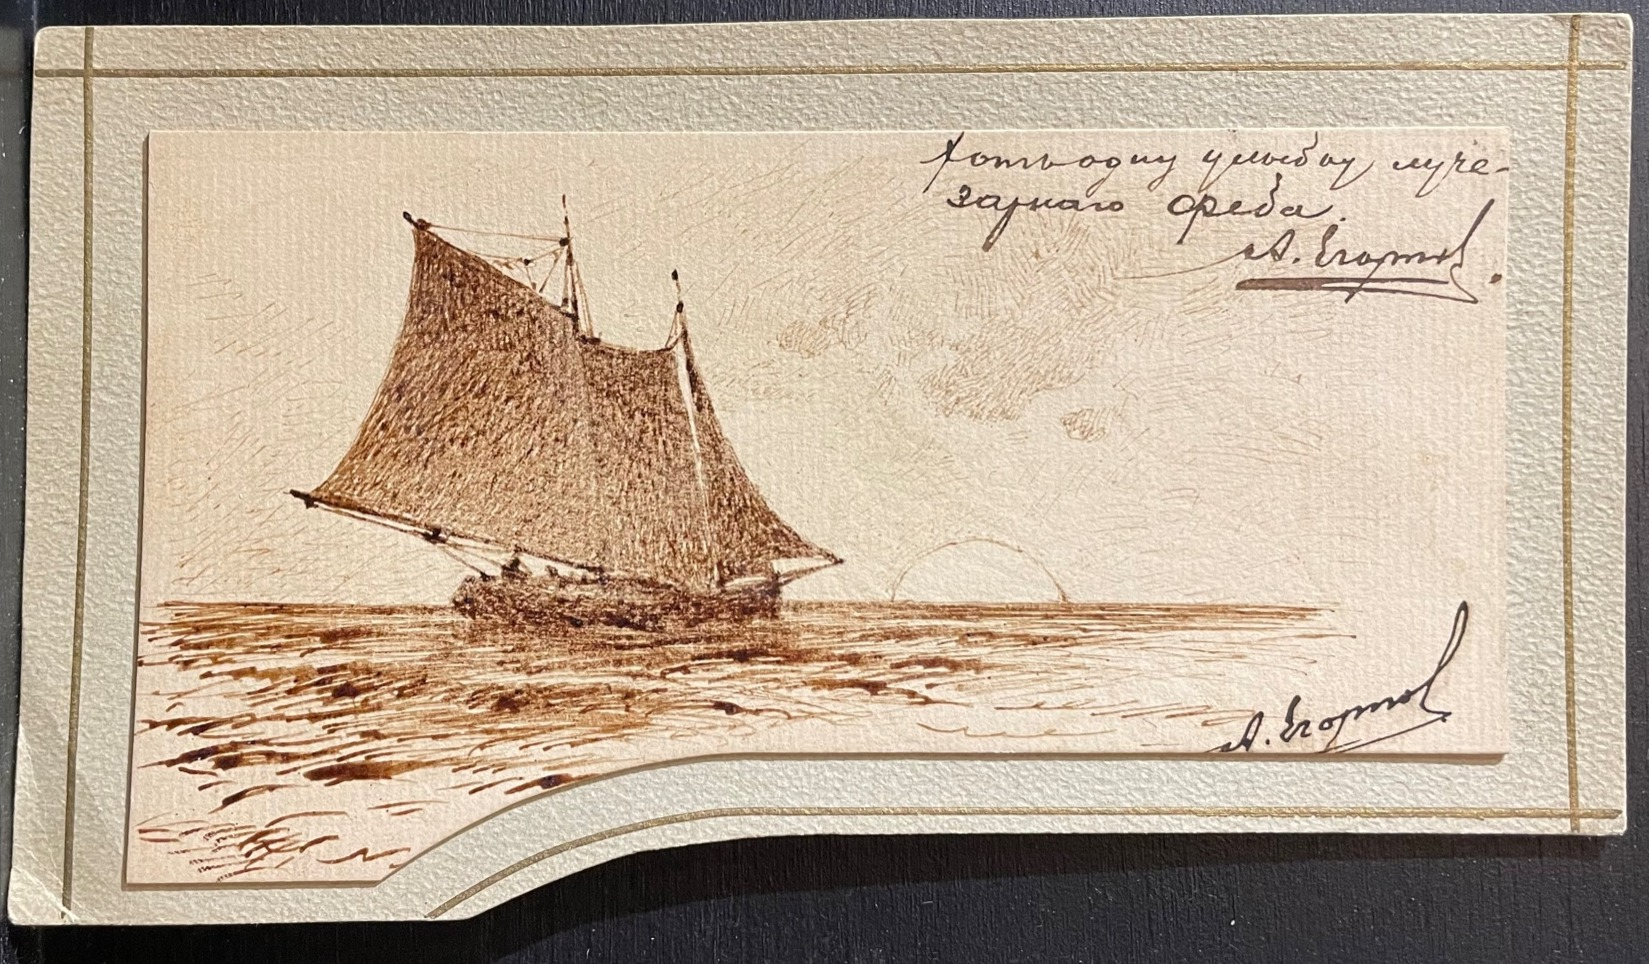 Хоть одну улыбку луче-
зарнаго Феба.
А. Егорнов.
А. Егорнов